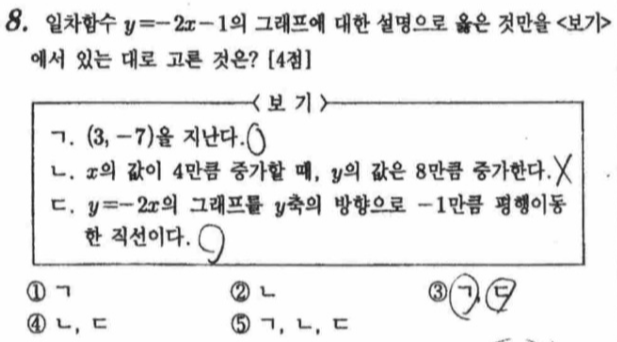 8. 일차함수 y=-2x-1의 그래프에 대한 설명으로 옳은 것만을 <보기>
에서 있는 대로 고른 것은? [4점]
<보 기>
ㄱ. (3, -7)을 지난다. O
ㄴ. x의 값이 4만큼 증가할 때, y의 값은 8만큼 증가한다. X
ㄷ. y=-2x의 그래프를 y축의 방향으로 -1만큼 평행이동
한 직선이다. O
① ㄱ ② ㄴ ③ ㄱ, ㄷ
④ ㄴ, ㄷ ⑤ ㄱ, ㄴ, ㄷ